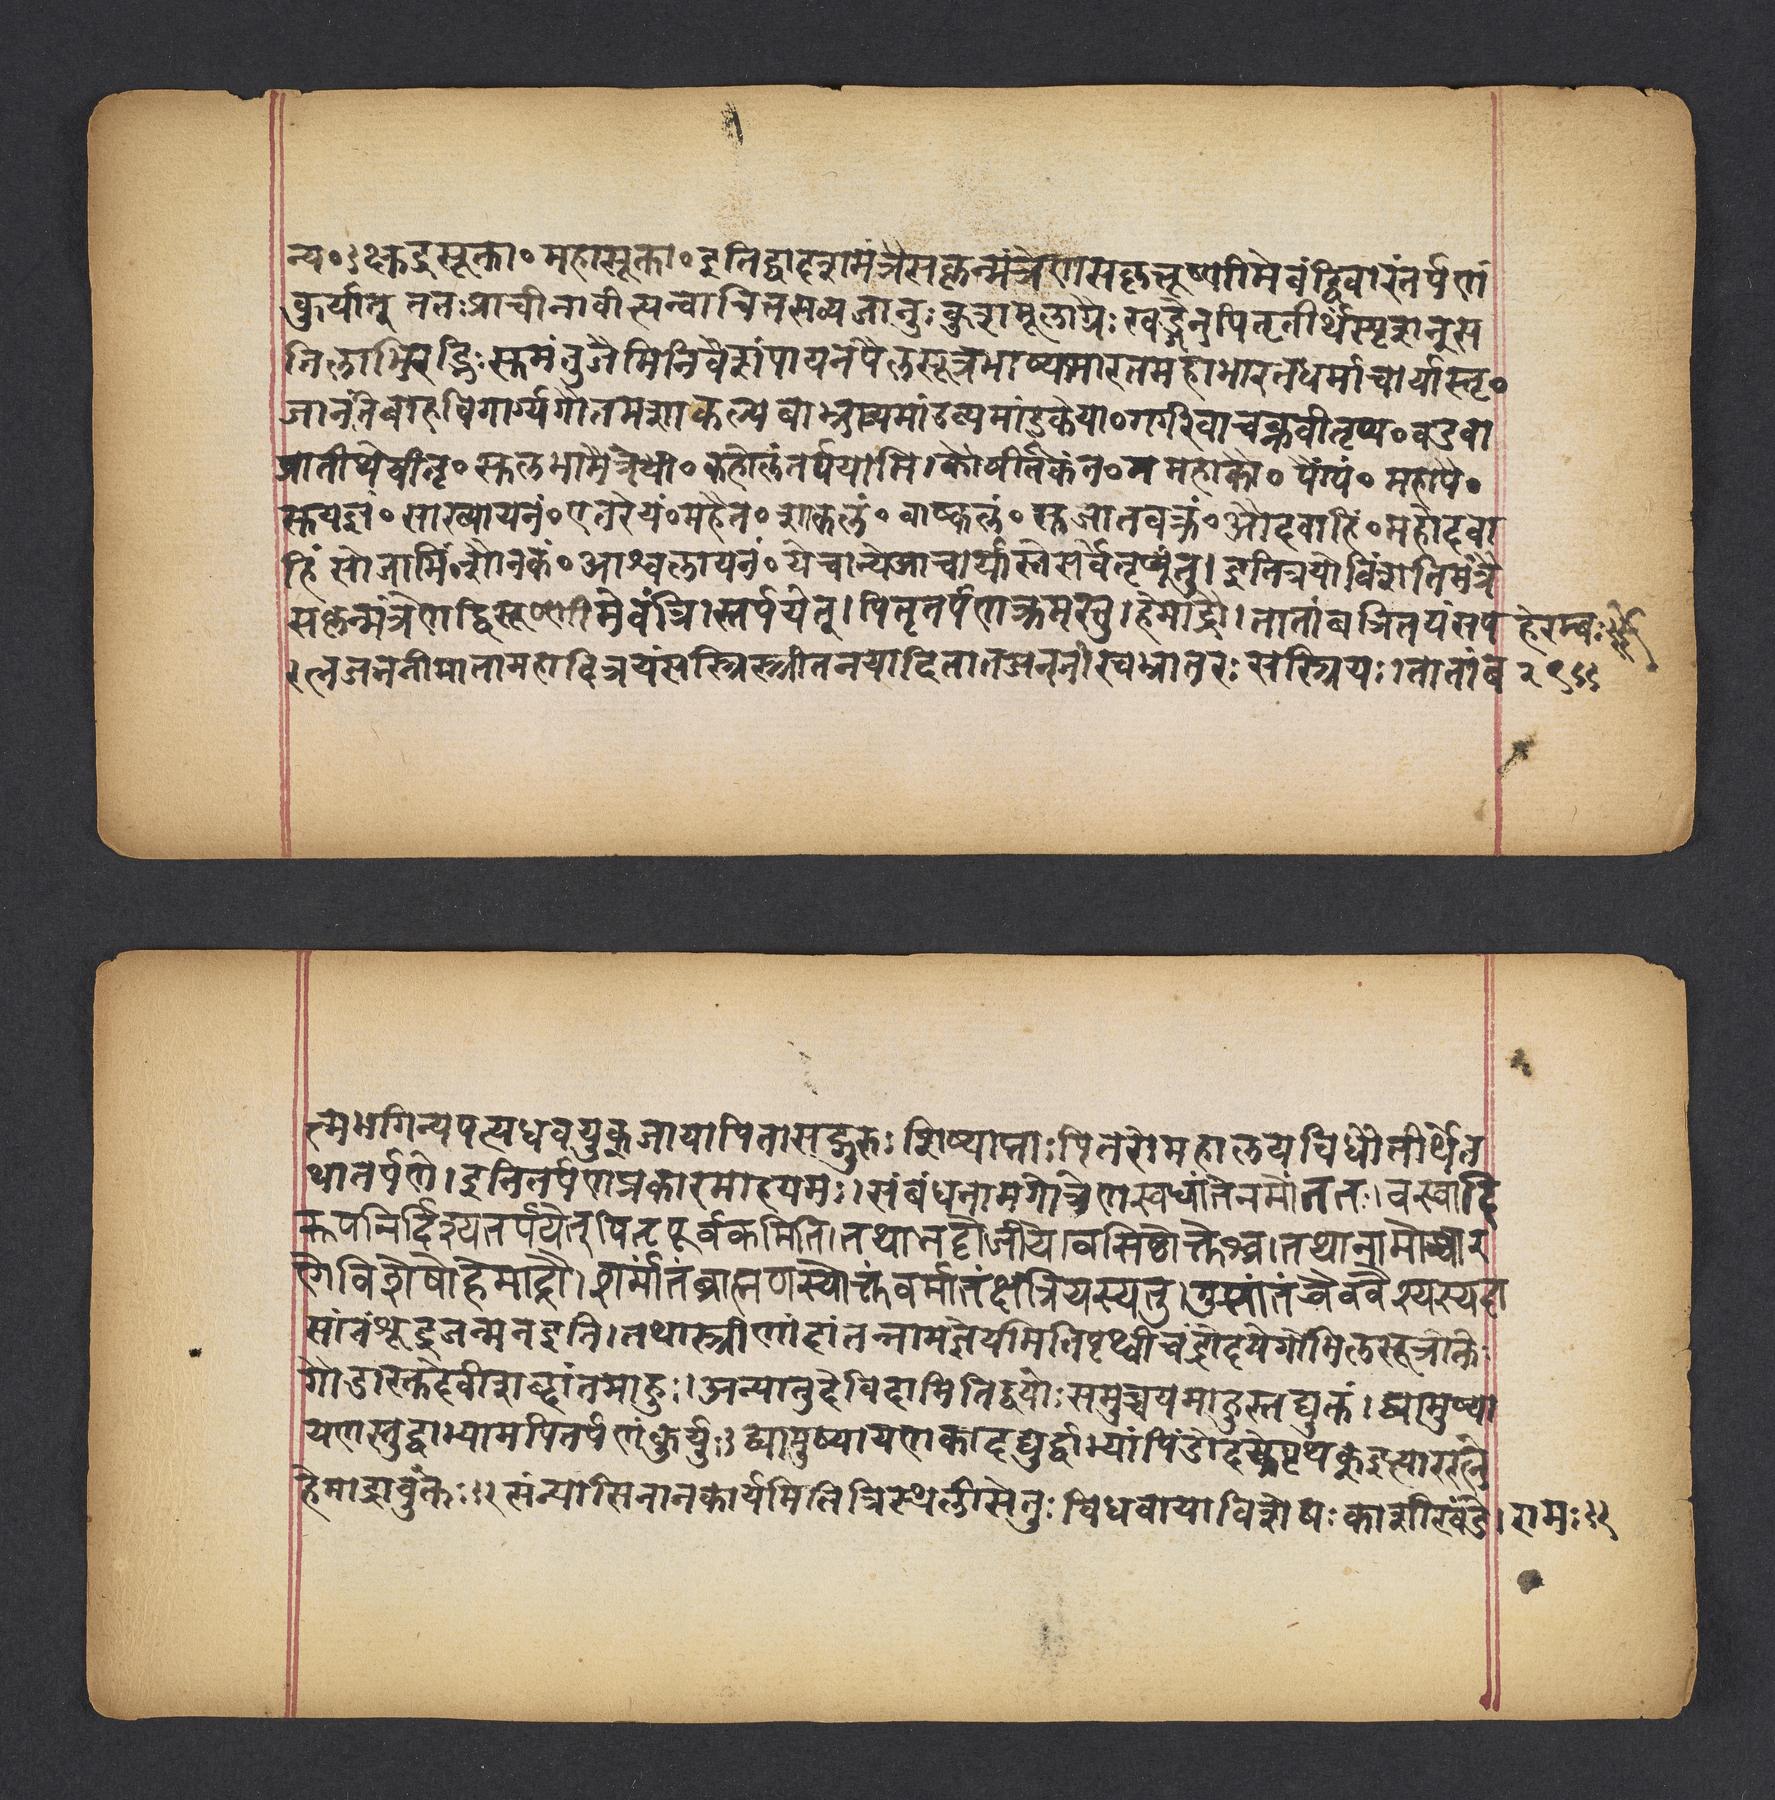 न्य०।क्षुद्रसूक्ता०महासूक्ता०इतिद्वादशमंत्रैसकृन्मंत्रेणसकृत्तूष्णीमेवंद्विवारंतर्पणं
कुर्यात् ततःप्राचीनावीत्यन्वाचितसव्यजानुःकुशमूलाग्रैःखड्गेनपितृतीर्थेस्पृशन्स
तिलाभिरद्भिःसुमंतुजैमिनिवैशंपायनपैलसूत्रभाष्यभारतमहाभारतधर्माचार्यास्तृ०
जानंतिबाहविगार्ग्यगौतमशाकल्यबाभ्रव्यमांडव्यमांडुकेया०गर्गीवाचक्नवीतृप्य०वडवा
प्रातीथेयीतृ०सुलभामैत्रेयी०कहोलंतर्पयामि।कौषीतकंत०म महाकौ०पैंग्यं०महापै०
सुयज्ञं०सांख्यायनं०ऐतरेयं०महैत०शाकलं०बाष्कलं०सुजातवक्रं०औदवाहिं०महौदवा
हिं सौजामिं शौनकं०आश्वलायनं०येचान्येआचार्यास्तेसर्वेतृप्यंतु।इतित्रयोविंशतिमंत्रै
सकृन्मंत्रेणद्विस्तूष्णीमेवंत्रिस्तर्पयेत्।पितृतर्पणक्रमस्तु।हेमाद्रौ।तातांबत्रितयंसप हेरम्बः॥
त्नजननीमातामहादित्रयंसस्त्रिस्त्रीतनयादितातजननीस्वभ्रातरःसस्त्रियः।तातांब २९
त्मभगिन्यपत्यधवयुक्जायापितासद्गुरुःशिष्याप्ताःपितरोमहालयविधौतीर्थेत
थातर्पणे।इतितर्पणप्रकारमाहयमः।संबंधनामगोत्रेणस्वधांतेनमोंततः।वस्वादि
रूपनिर्दिश्यतर्पयेत्पितृपूर्वकमिति।तथातद्दौजीये।वसिष्ठोक्तेश्च।तथानामोच्चार
णेविशेषोहेमाद्रौ।शर्मांतंब्राह्मणस्योक्तंवर्मांतंक्षत्रियस्यतु।गुप्तांतंचैववैश्यस्यदा
सांतंशूद्रजन्मनइति।तथास्त्रीणांदांतन्नामज्ञेयमितिपृथ्वीचंद्रोदयेगोभिलसूत्रोक्तेः
गौडास्तुदेवीशब्दांतमाहुः।अन्यातुदेविदामितिद्वयोःसमुच्चयमाहुस्तद्युक्तं।द्व्यामुष्या
यणस्तुद्वाभ्यामपितर्पणंकुर्युः।द्व्यामुष्यायणकादद्युर्द्वाभ्यांपिंडोदकेपृथक्इत्यारत्ने
हेमाद्रावुक्तः॥संन्यासिनानकार्यमितित्रिस्थलीसेतुःविधवायाविशेषःकाशीखंडे। रामः॥